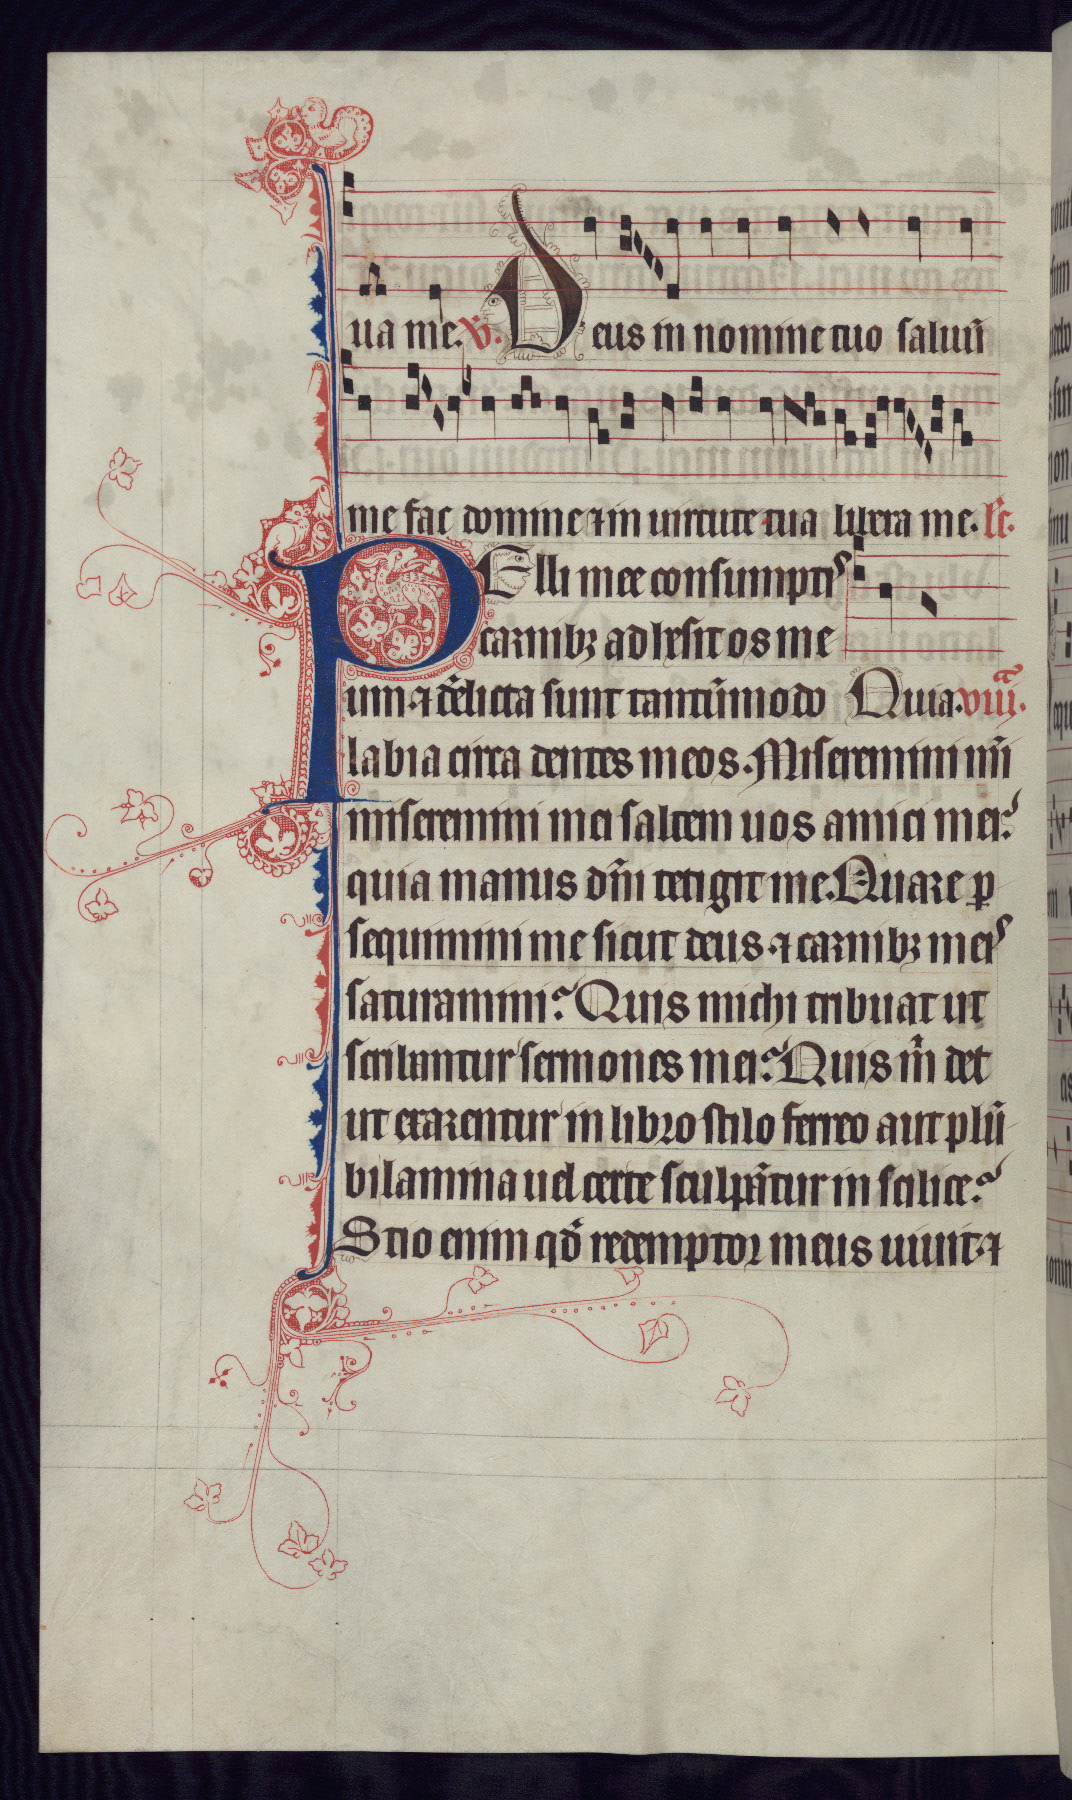 ua me. v̄. Deus in nomine tuo saluū
me fac domine ⁊ in uirtute tua libera me. lc̄.
PElli mee consumptis
carnibꝫ adhesit os me
um ⁊ derelicta sunt tantūmodo Quia. viiiᵃ.
labia circa dentes meos. Miseremini mi̅
miseremini mei saltem uos amici mei:
quia manus dn̄i tetigit me. Quare ꝑ
sequimini me sicut deus ⁊ carnibꝫ meis
saturamini? Quis michi tribuat ut
scribantur sermones mei? Quis m̄ det
ut exarentur in libro stilo ferreo aut plū
bi lamina uel certe sculpātur in scilice?
Scio enim qđ redemptor meus uiuit ⁊